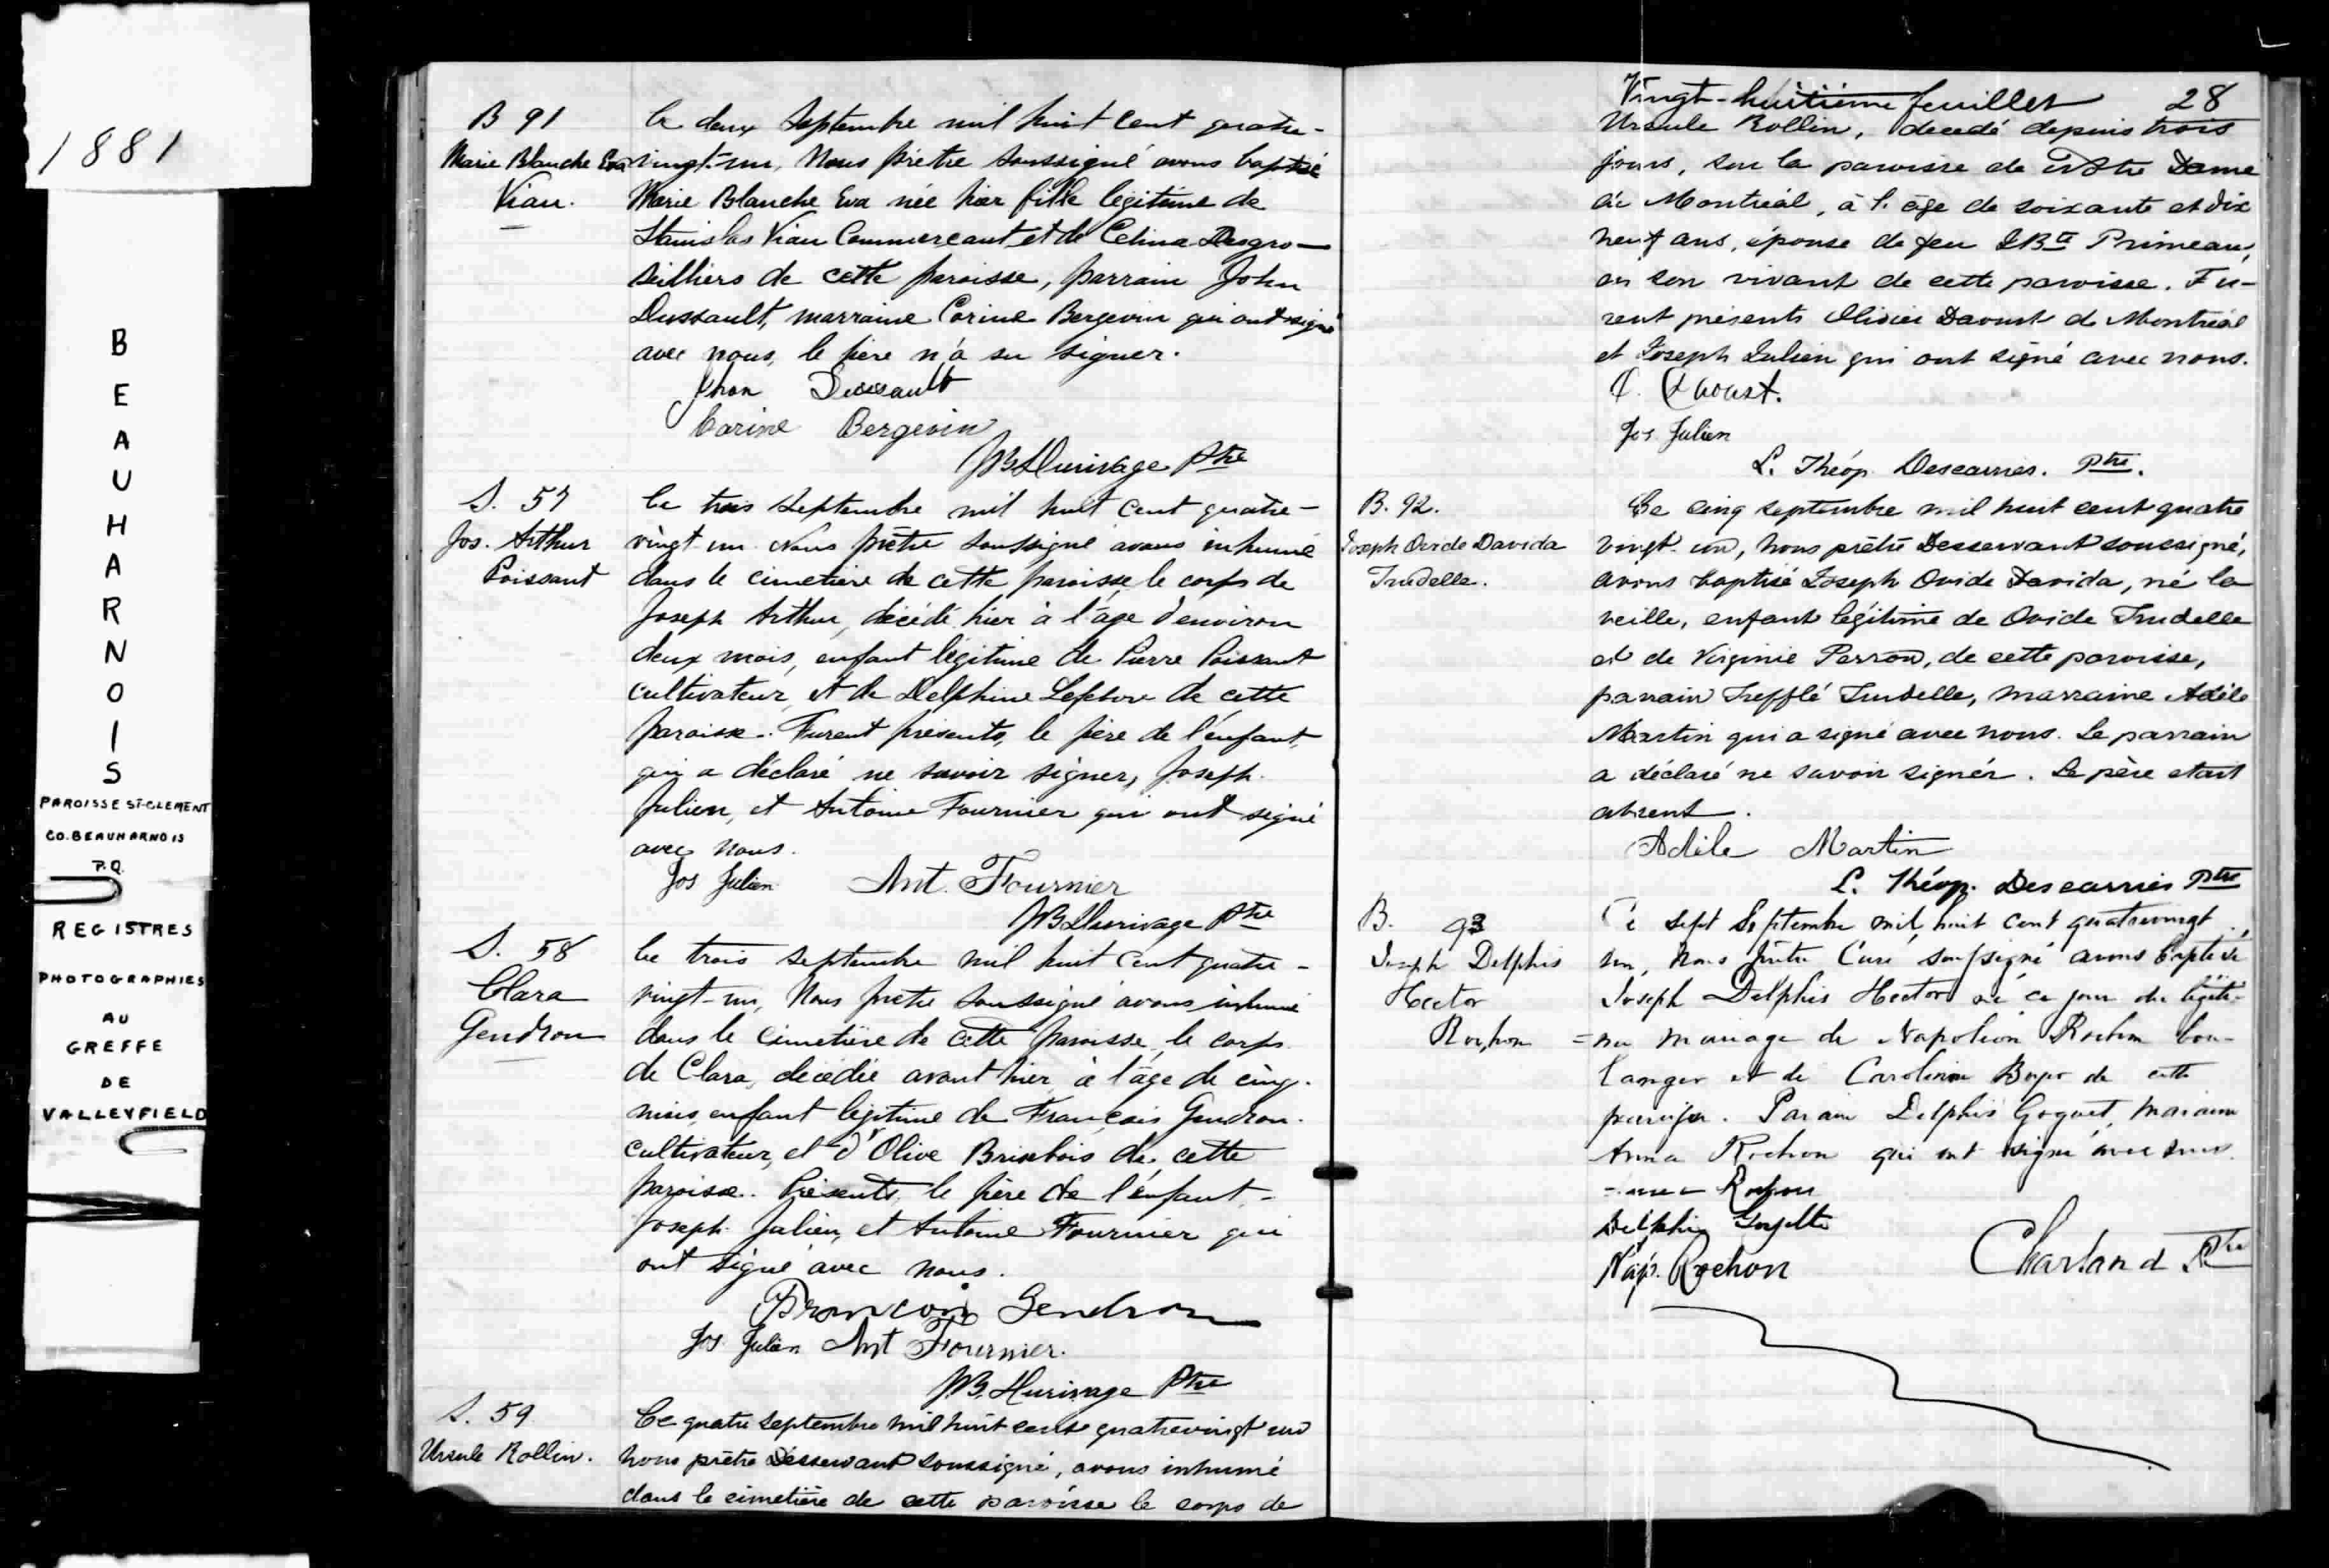 1881
BEAUHARNOIS
PAROISSE ST-CLEMENT
CO. BEAUHARNOIS
P.Q.
REGISTRES
PHOTOGRAPHIES
AU
GREFFE
DE
VALLEYFIELD
B 91
Marie Blanche Eva
Viau.
Le deux Septembre mil huit cent quatre-
vingt-un, Nous prêtre soussigné avons baptisé
Marie Blanche Eva née hier fille légitime de
Stanislas Viau Commerçant et de Celina Desgro-
seilliers de cette paroisse, parrain John
Dussault, marraine Corine Bergevin qui ont signé
avec nous, le père n'a su signer.
Jhon Dussault
Corine Bergevin
Ptre
S. 57
Jos. Arthur
Poissant
Le trois Septembre mil huit cent quatre-
vingt-un Nous prêtre soussigné avons inhumé
dans le cimetière de cette paroisse le corps de
Joseph Arthur, décédé hier à l'âge d'environ
deux mois, enfant légitime de Pierre Poissant
cultivateur, et de Delphine Lefebvre de cette
paroisse. Furent présents, le père de l'enfant,
qui a déclaré ne savoir signer, Joseph
Julien, et Antoine Fournier qui ont signé
avec nous.
Jos Julien Ant. Fournier
Ptre
S. 58
Clara
Gendron
Le trois Septembre mil huit cent quatre-
vingt-un, Nous prêtre soussigné avons inhumé
dans le cimetière de cette paroisse, le corps
de Clara, décédée avant hier, à l'âge de cinq
mois, enfant légitime de François Gendron
cultivateur, et d'Olive Brisebois de cette
paroisse. Présents, le père de l'enfant,
Joseph Julien, et Antoine Fournier qui
ont signé avec nous.
Francois Gendron
Jos Julien Ant Fournier.
Ptre
S. 59
Ursule Rollin.
Ce quatre septembre mil huit cent quatrevingt un
nous prêtre Desservant soussigné, avons inhumé
dans le cimetière de cette paroisse le corps de
Vingt-huitième feuillet 28
Ursule Rollin, décédé depuis trois
jours, sur la paroisse de Notre Dame
de Montréal, à l'âge de soixante et dix
neuf ans, épouse de feu J Bte Primeau,
en son vivant de cette paroisse. Fu-
rent présents Olivier Daoust de Montréal
et Joseph Julien qui ont signé avec nous.
O. Daoust.
Jos Julien
L. Théop. Descarries. Ptre.
B. 92.
Joseph Ovide Davida
Trudelle.
Le cinq septembre mil huit cent quatre
vingt un, nous prêtre Desservant soussigné,
avons baptisé Joseph Ovide Davida, né la
veille, enfant légitime de Ovide Trudelle
et de Virginie Perron, de cette paroisse,
parrain Trefflé Trudelle, marraine Adèle
Martin qui a signé avec nous. Le parrain
a déclaré ne savoir signer. Le père était
absent.
Adile Martin
L. Théop. Descarries Ptre
B. 93
Joseph Delphis
Hector
Rochon
Ce sept Septembre mil huit cent quatrevingt
un, Nous prêtre Curé soussigné avons baptisé
Joseph Delphis Hector né ce jour du légiti-
=me mariage de Napoléon Rochon bou-
langer et de Caroline de cette
paroisse. Parain Delphis Goyet, Maraine
Anna Rochon qui ont signé avec nous.
Rochon
Delphis
Nap. Rochon
Charland Ptre